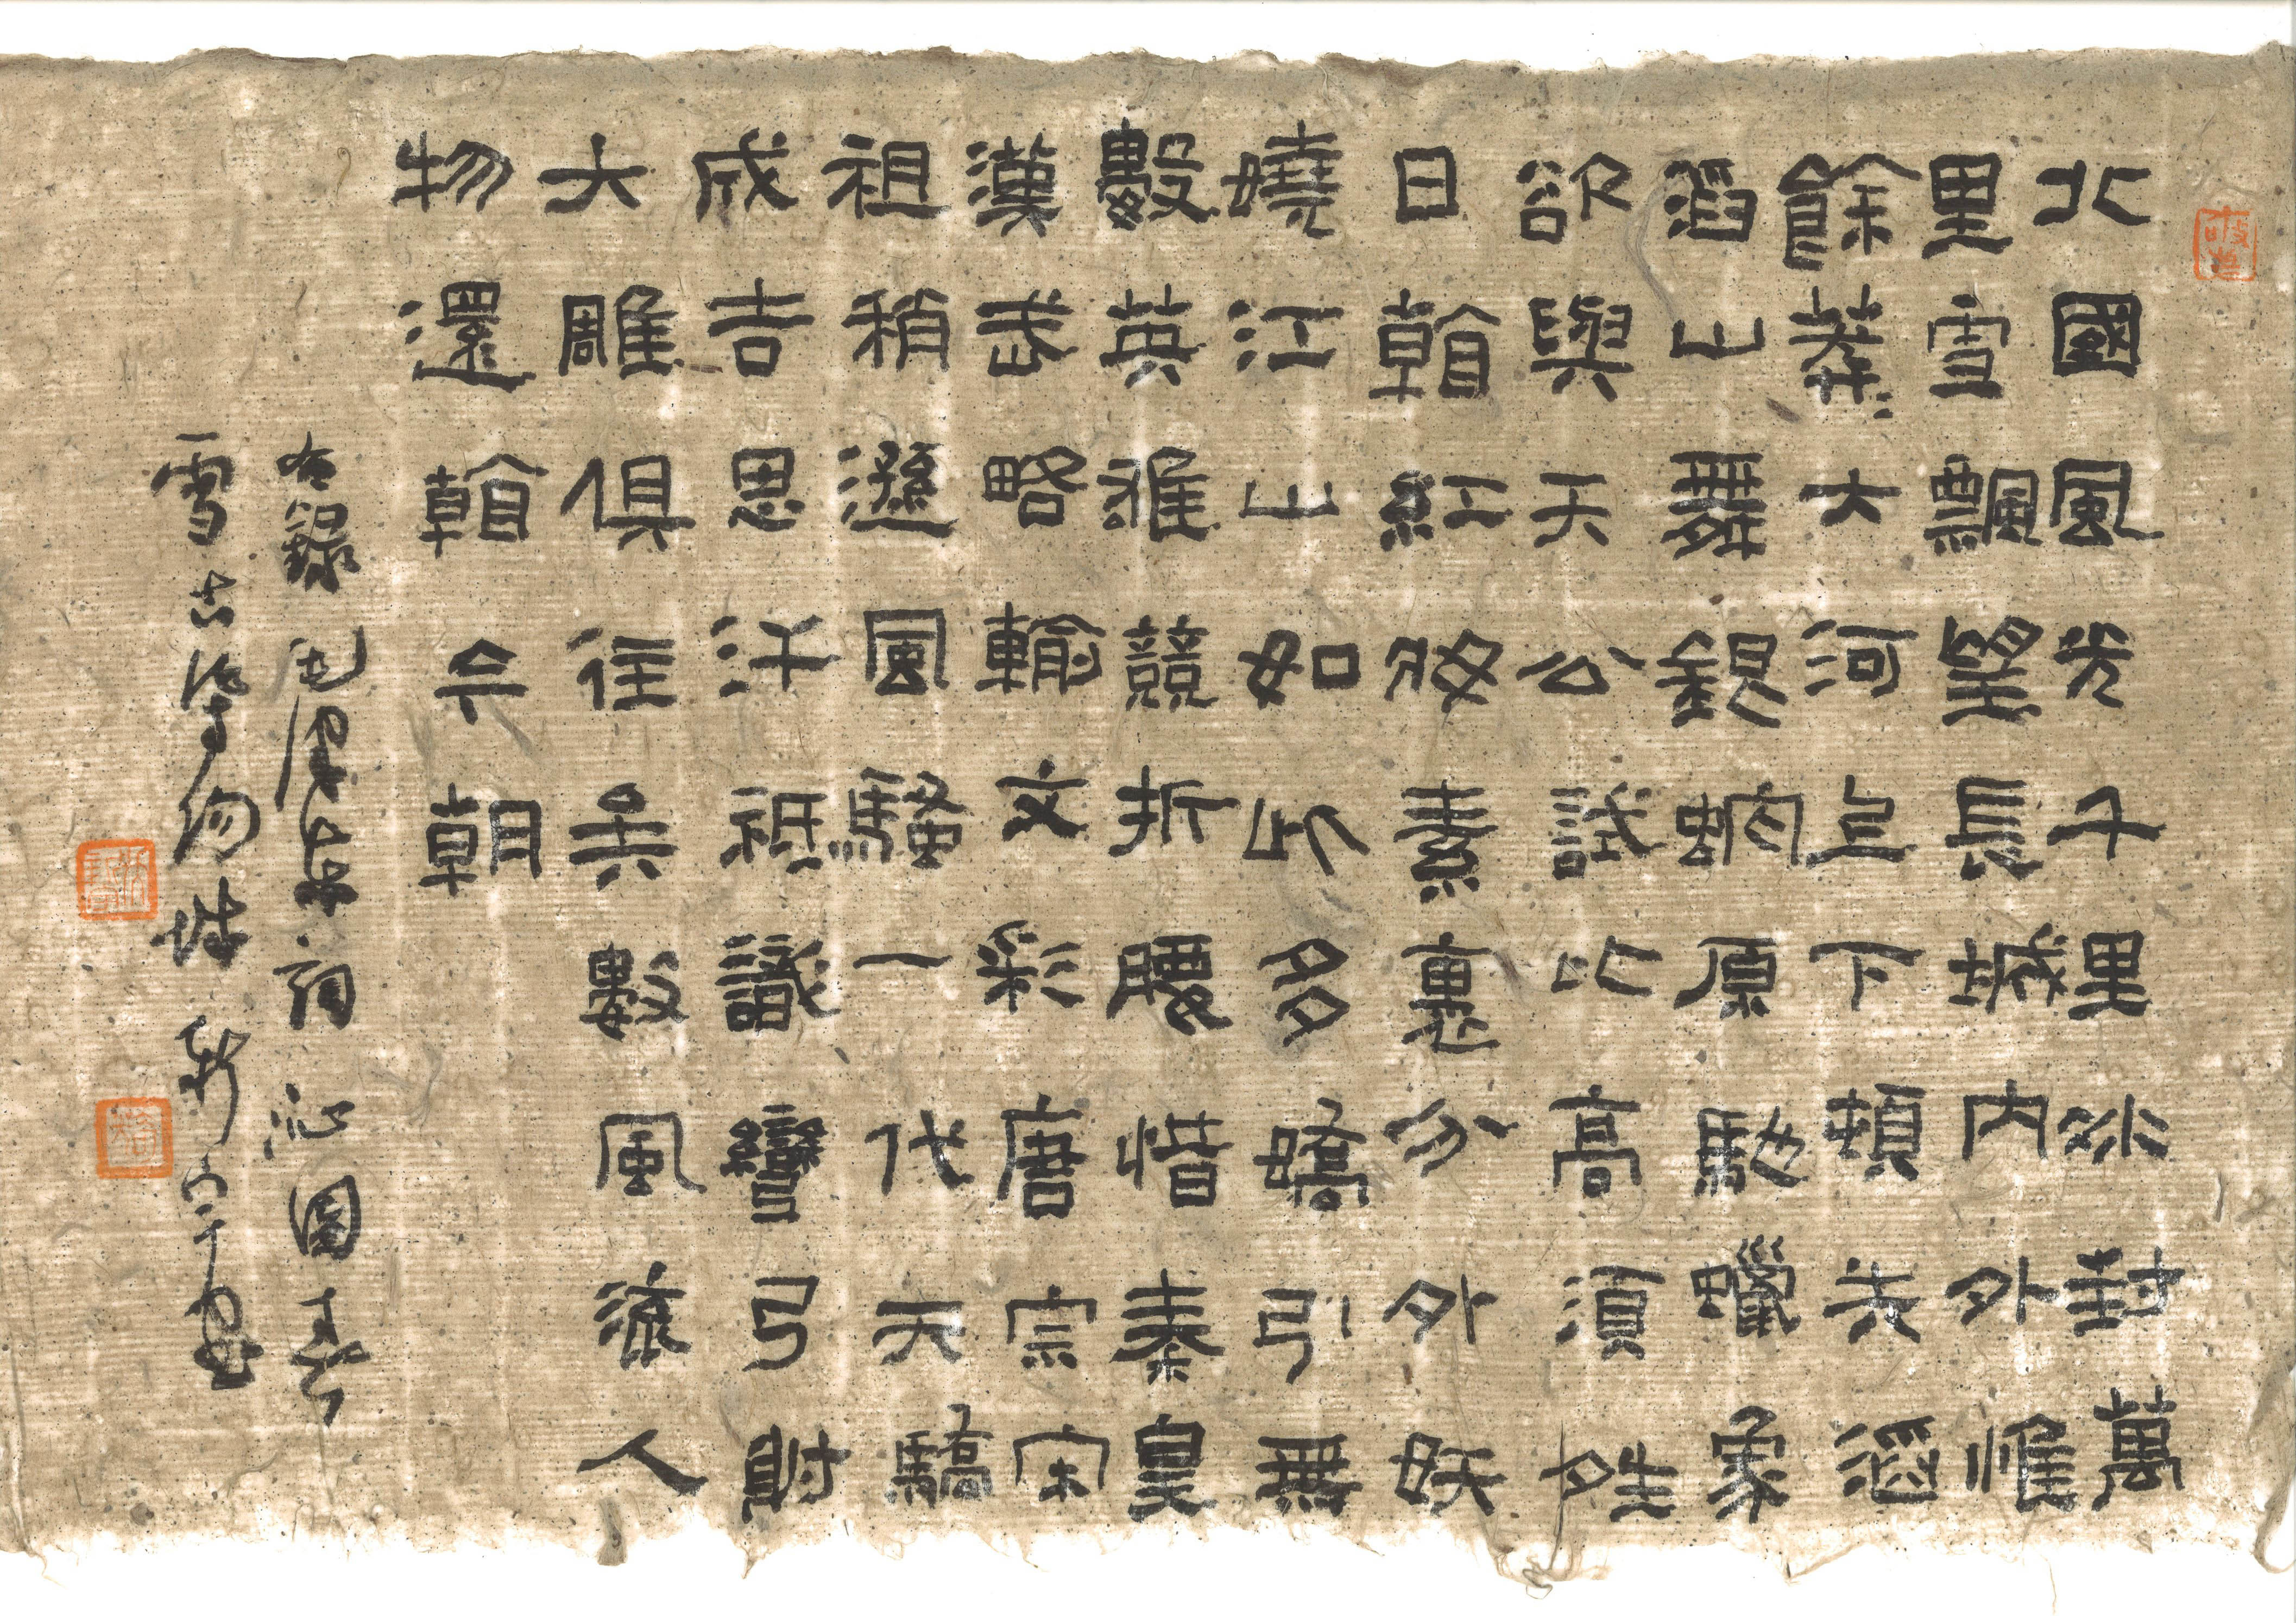 北國風光千里冰封萬
里雪飄望長城內外惟
餘莽〻大河上下頓失滔
滔山舞銀蛇原馳蠟象
欲與天公試比高須夝
日看紅妝素裹分外妖
嬈江山如此多嬌引無
數英雄競折腰惜秦皇
漢武略輸文彩唐宗宋
祖稍遜風騷一代天驕
成吉思汗祗識彎弓射
大雕俱往矣數風流人
物還看今朝
右錄毛澤東詞沁園春
雪古